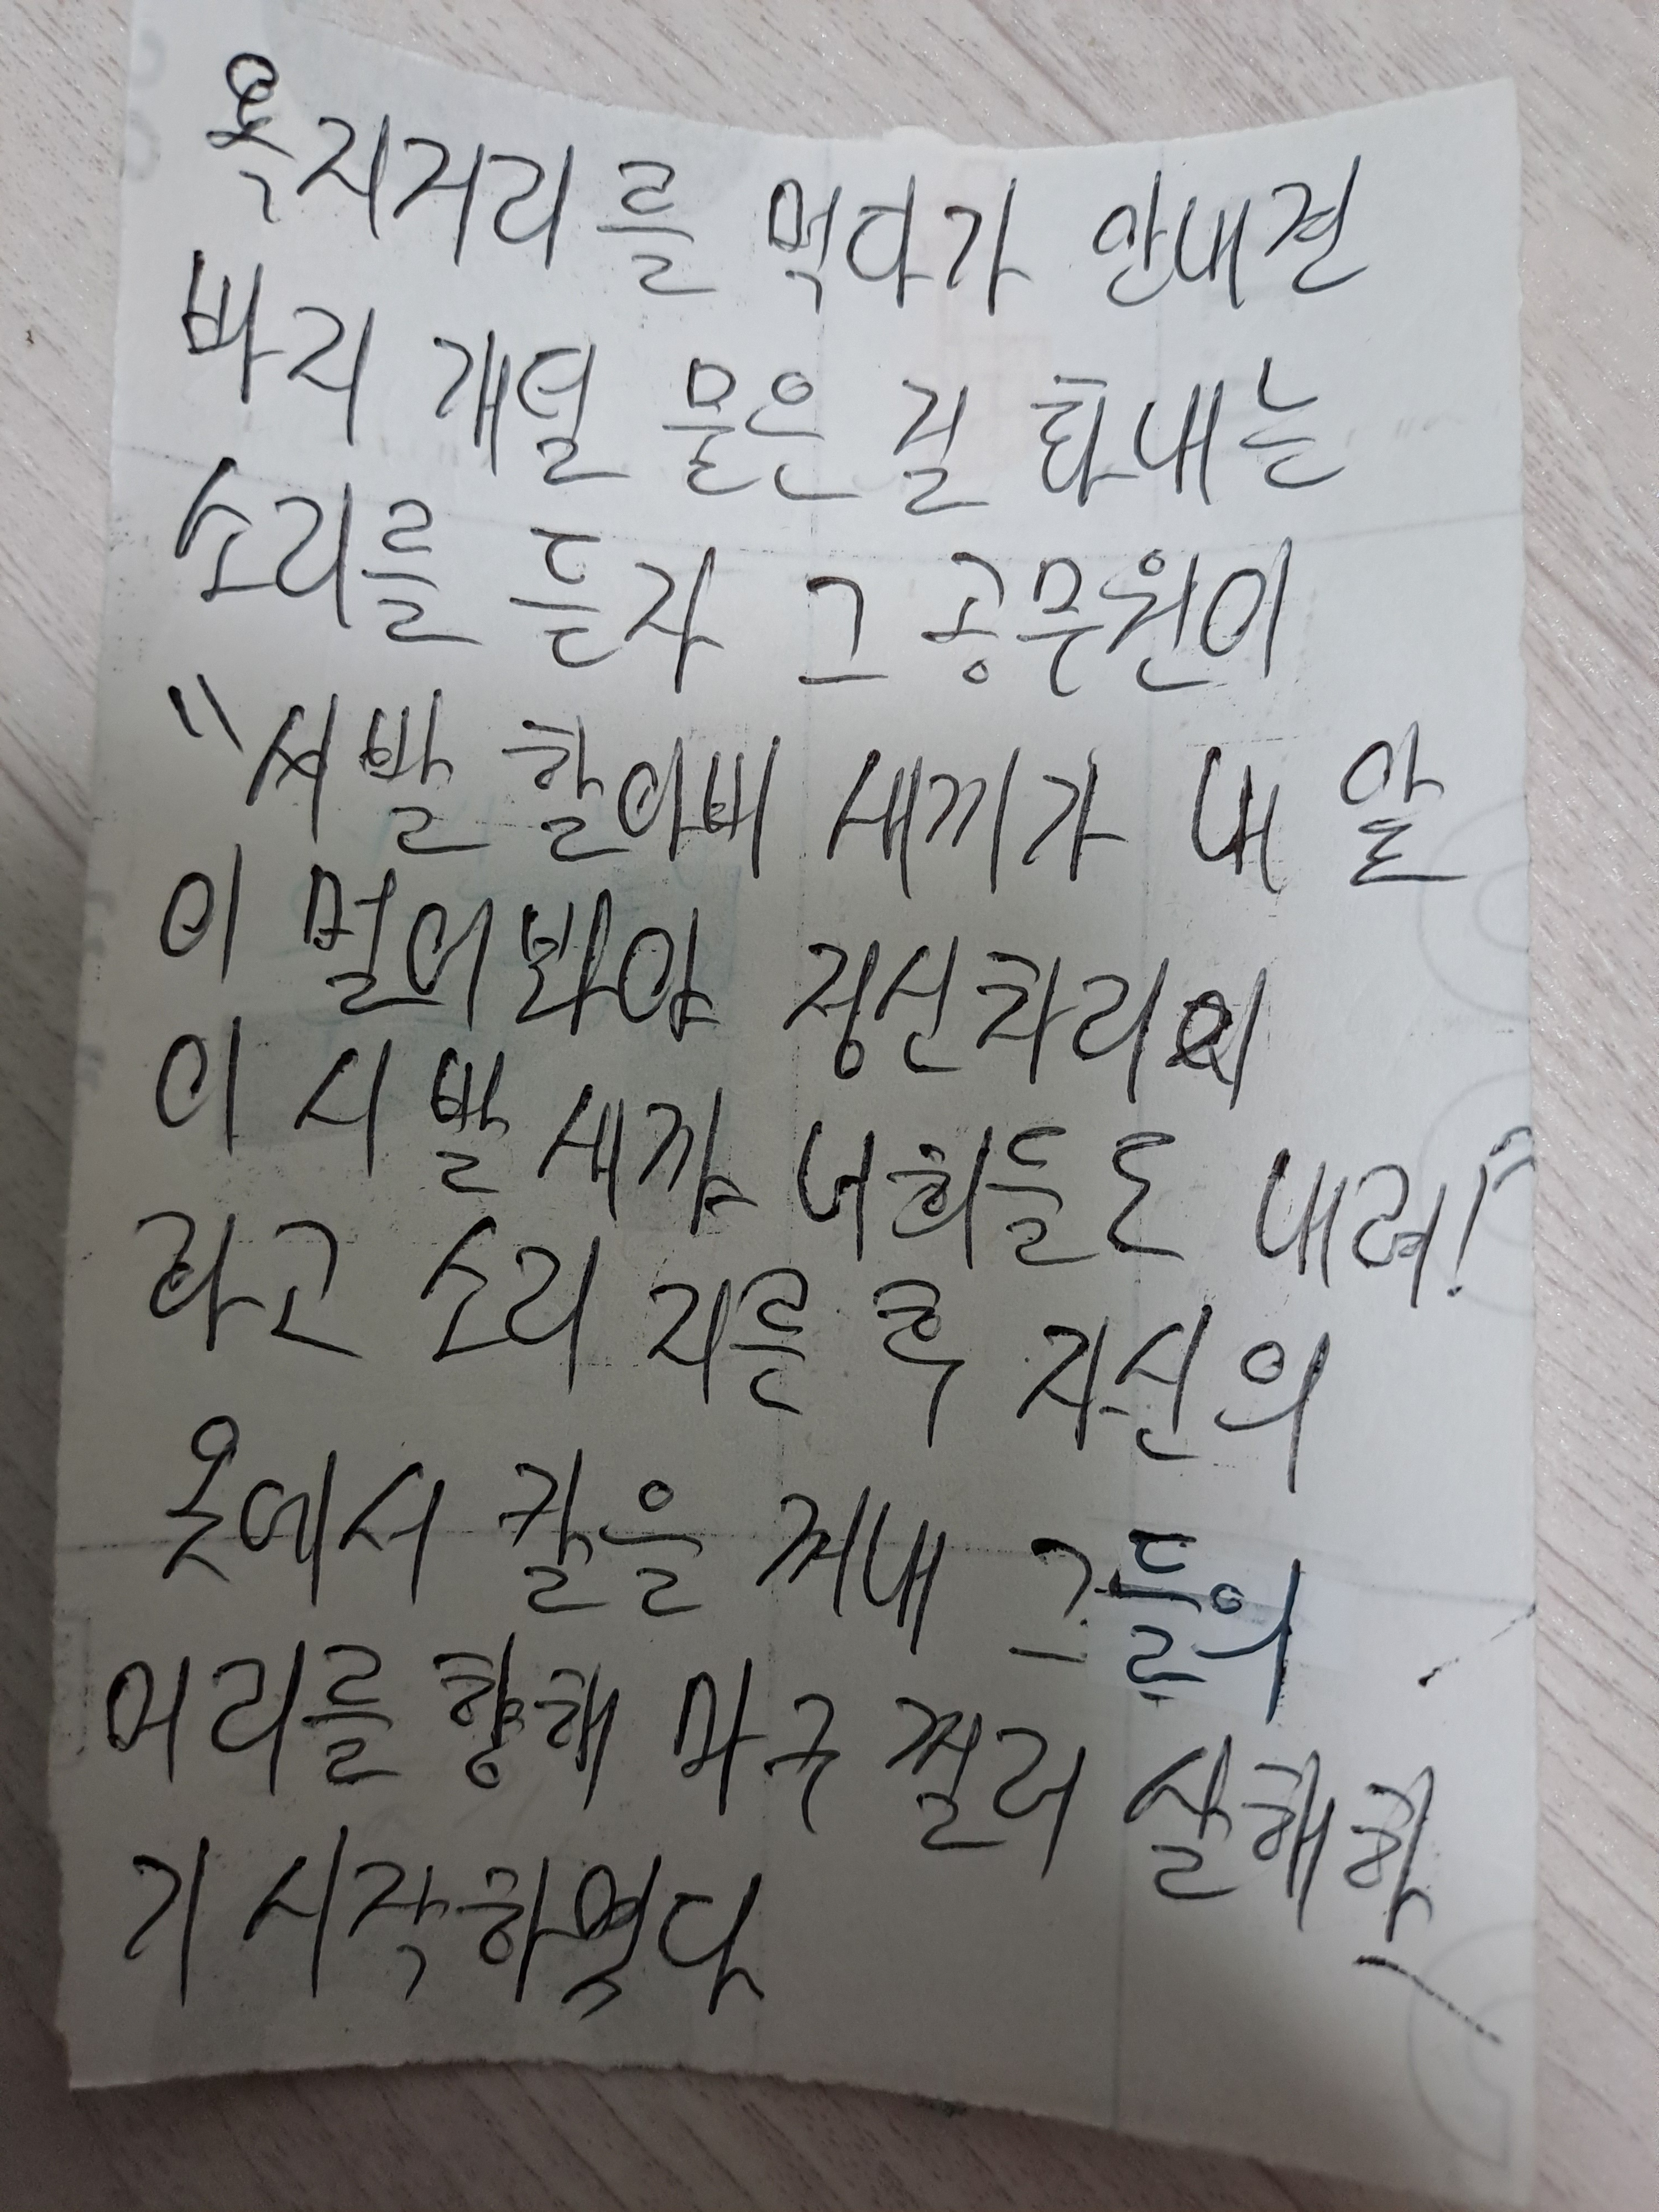 욕지거리를 먹다가 안내견
바지 개털 묻은 걸 화내는
소리를 듣자 그 공무원이
"씨발 할아버 새끼가 내 알
이 멀어봐야 정신차리의
이 시발 새꺄 너희들도 내려!"
라고 소리 지른 후 자신의
옷에서 칼을 꺼내 그들의
머리를 향해 마구 찔러 살해하
기 시작하였다